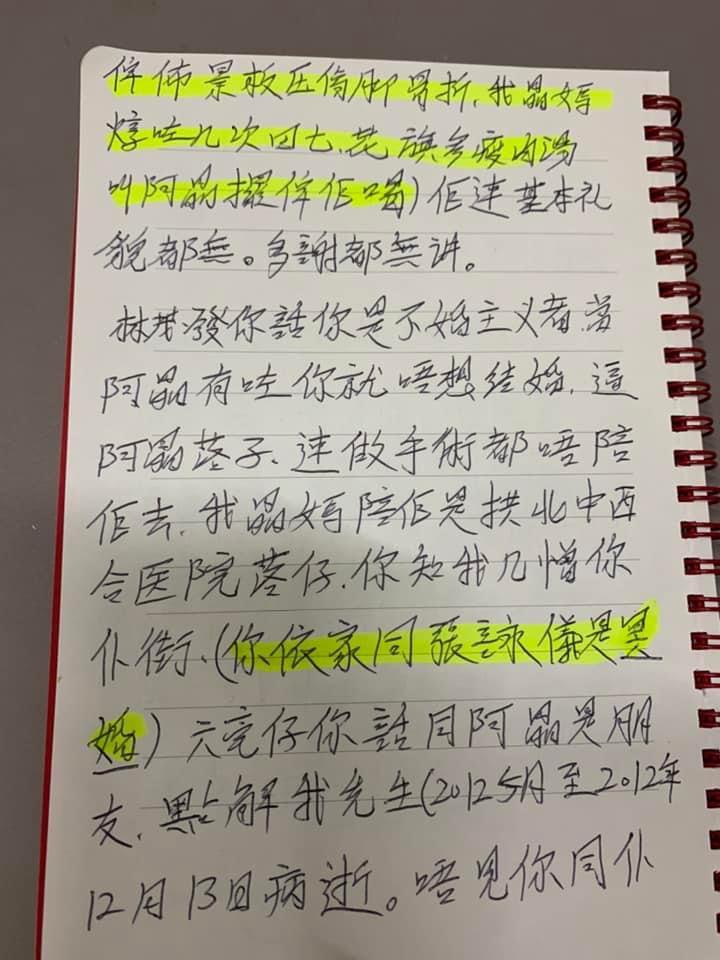 佈景板压傷脚骨折,我晶媽
炖咗几次田七、花旗参瘦肉湯
叫阿晶攞佢喝)佢連基本礼
貌都無。多謝都無讲。
林發你話你是不婚主义者,當
阿晶有咗你就唔想结婚,逼
阿晶落子、連做手術都唔陪
佢去,我晶媽陪佢是拱北中西
合医院落仔,你知我几憎你
仆街、(你依家同張詠儀是黑
婚)六壳仔你話同阿晶是朋
友,點解我先生(2012 5月至2012年
12月13日病逝。唔見你同仆